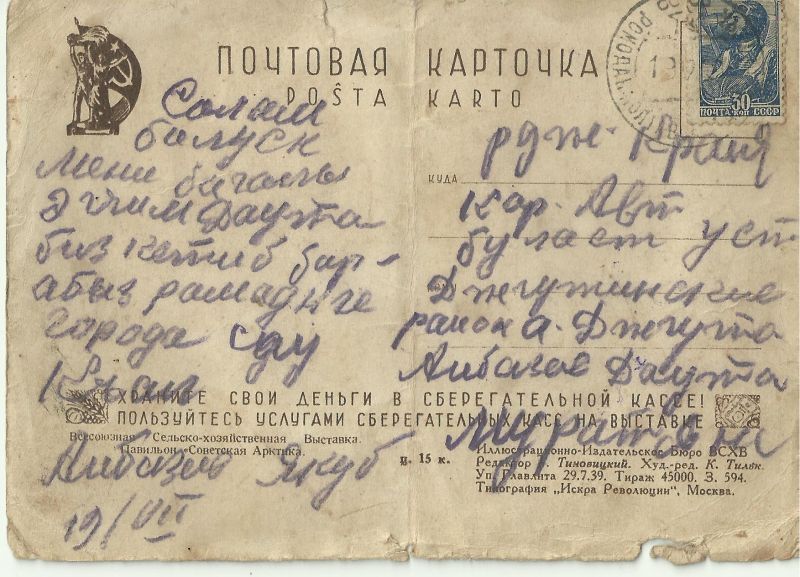 ПОЧТОВАЯ КАРТОЧКА
POŜTA KARTO
30
ПОЧТА КОП СССР
Салам
балуск
мени багалы
Эгчим Даута
биз кетиб бар-
абыз
города
КУДА
рдж-Край
кар. Авт
бу ласт уст
Джегутинские
район а. Джегута
Айбазов Даута
ХРАНИТЕ СВОИ ДЕНЬГИ В СБЕРЕГАТЕЛЬНОЙ КАССЕ!
ПОЛЬЗУЙТЕСЬ УСЛУГАМИ СБЕРЕГАТЕЛЬНЫХ КАСС НА ВЫСТАВКЕ
Всесоюзная Сельско-хозяйственная Выставка.
Павильон „Советская Арктика".
Айбазов Якуб
19/VII
ц. 15 к.
Иллюстрационно-Издательское Бюро ВСХВ
Редактор К. Тиновицкий. Худ.-ред. К. Тильк.
Уп. Главлита 29.7.39. Тираж 45000. З. 594.
Типография „Искра Революции", Москва.